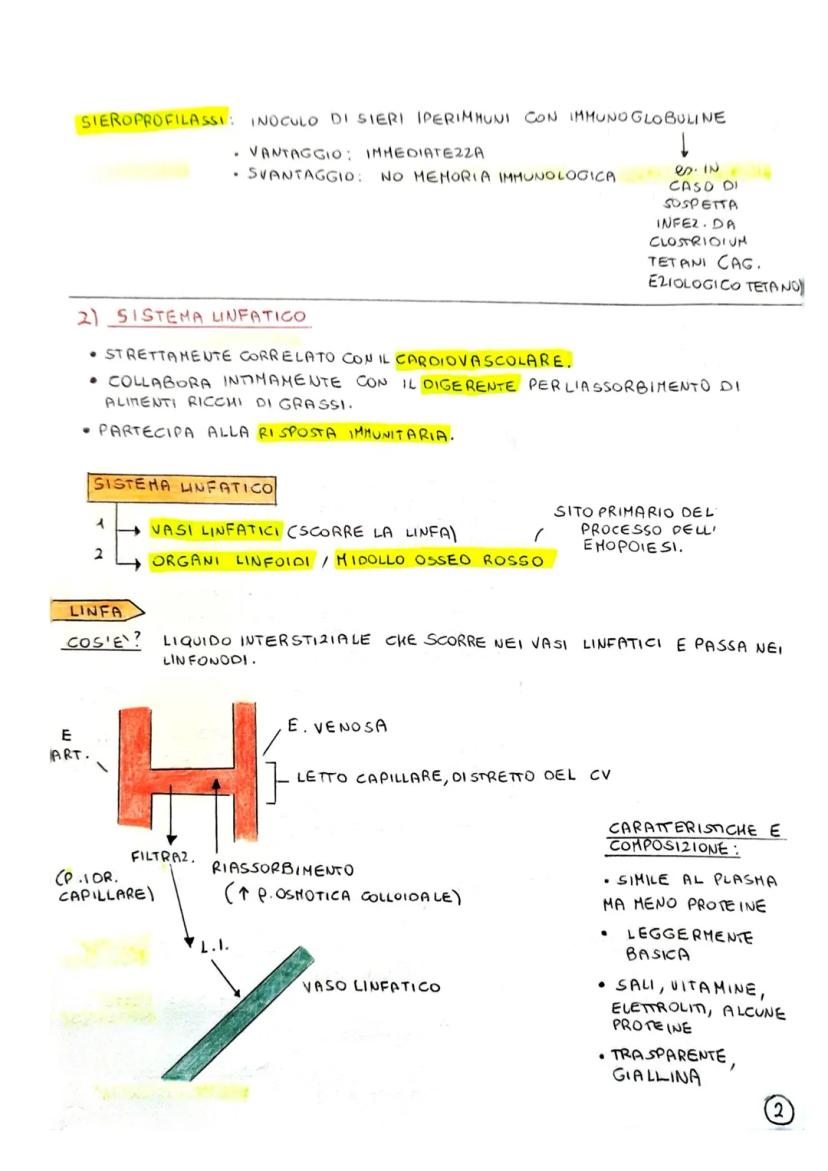 SIEROPROFILASSI: INOCULO DI SIERI IPERIMMUNI CON IMMUNOGLOBULINE
• VANTAGGIO: IMMEDIATEZZA
• SVANTAGGIO: NO MEMORIA IMMUNOLOGICA
es. IN
CASO DI
SOSPETTA
INFEZ. DA
CLOSTRIDIUM
TETANI CAG.
EZIOLOGICO TETANO)
2) SISTEMA LINFATICO
• STRETTAMENTE CORRELATO CON IL CARDIOVASCOLARE.
• COLLABORA INTIMAMENTE CON IL DIGERENTE PER L'ASSORBIMENTO DI
ALIMENTI RICCHI DI GRASSI.
• PARTECIPA ALLA RISPOSTA IMMUNITARIA.
SISTEMA LINFATICO
1 VASI LINFATICI (SCORRE LA LINFA)
2 ORGANI LINFOIDI / MIDOLLO OSSEO ROSSO
SITO PRIMARIO DEL
PROCESSO DELL'
EMOPOIESI.
LINFA
COS'E'? LIQUIDO INTERSTIZIALE CHE SCORRE NEI VASI LINFATICI E PASSA NEI
LINFONODI.
E
ART.
E. VENOSA
LETTO CAPILLARE, DISTRETTO DEL CV
FILTRAZ.
(P. IDR.
CAPILLARE)
RIASSORBIMENTO
(↑ P. OSMOTICA COLLOIDALE)
L.I.
VASO LINFATICO
CARATTERISTICHE E
COMPOSIZIONE:
• SIMILE AL PLASMA
MA MENO PROTEINE
• LEGGERMENTE
BASICA
• SALI, VITAMINE,
ELETTROLITI, ALCUNE
PROTEINE
• TRASPARENTE,
GIALLINA
2